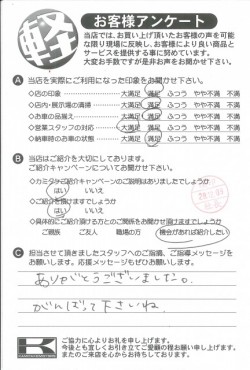 軽
お客様アンケート
当店では、お買い上げ頂いたお客様の声を可能
な限り現場に反映し、お客様により良い商品と
サービスを提供する事に努めています。
大変お手数ですが是非お声をお聞かせ下さい。
A 当店を実際にご利用になった印象をお聞かせ下さい。
◇店の印象 大満足 満足 ふつう やや不満 不満
◇店内・展示場の清掃 大満足 満足 ふつう やや不満 不満
◇お車の品揃え 大満足 満足 ふつう やや不満 不満
◇営業スタッフの対応 大満足 満足 ふつう やや不満 不満
◇納車時のお車の状態 大満足 満足 ふつう やや不満 不満
B 当店はご紹介を大切にしてあります。
ご紹介キャンペーンについてお聞かせ下さい。
◇カミタケご紹介キャンペーンのご説明はありましたでしょうか
はい いいえ
◇ご紹介を頂けますでしょうか
はい いいえ
◇具体的にご紹介頂ける方とのご関係をお聞かせ頂けますでしょうか
ご親族 ご友人 職場の方 機会があれば紹介したい
C 担当させて頂きましたスタッフへのご指摘、ご指導メッセージを
お願いします。応援メッセージもぜひお願いします。
ありがとうございました。
がんばって下さいね
K
ご協力に心よりお礼を申し上げます。
今後とも宜しくお引き立てご愛顧の程お願い申し上げます。
またのご来店を心からお待ちしております。